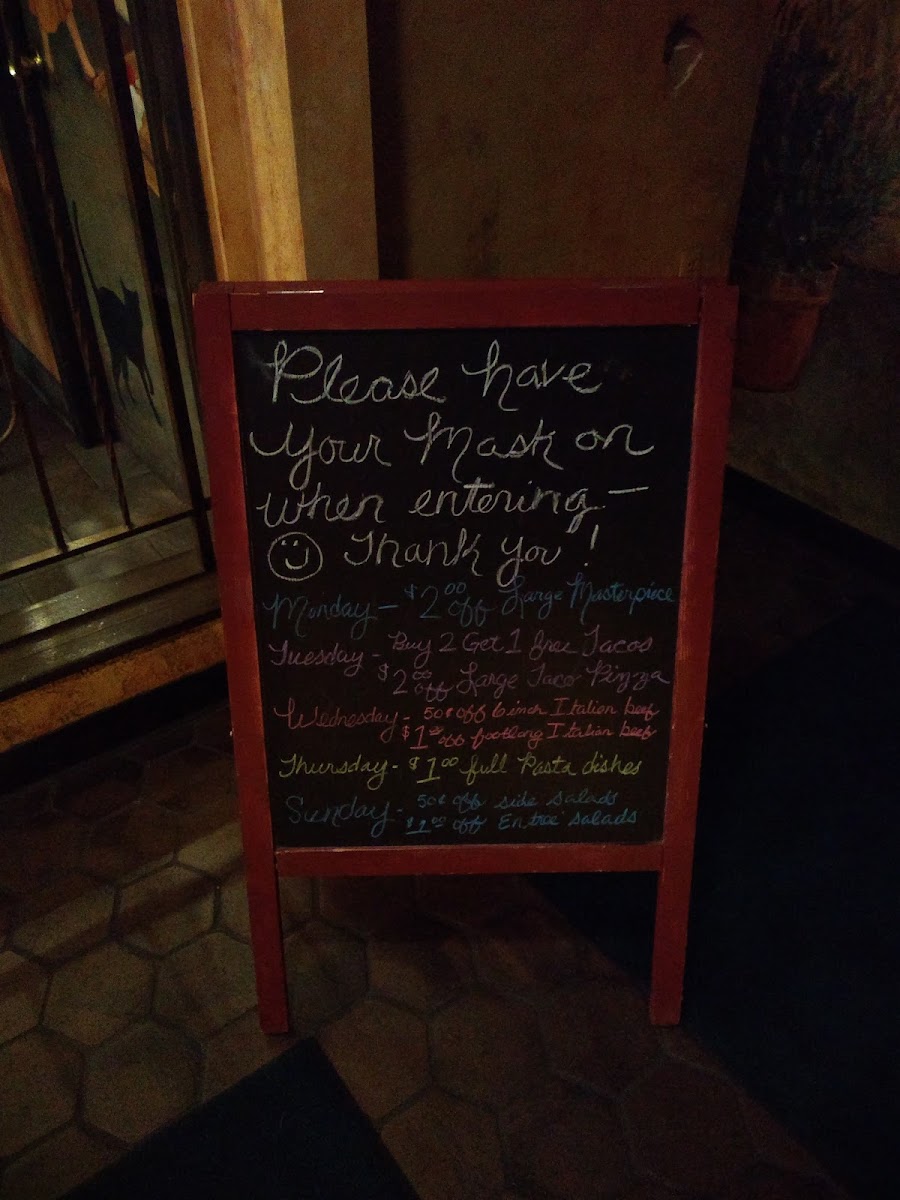 Please have
your Mask on
when entering -
Thank you!
Monday - $2.00 off Large Masterpiece
Tuesday - Buy 2 Get 1 free Tacos
$2.00 off Large Taco Pizza
Wednesday - 50¢ off 6 inch Italian beef
$1.00 off footlong Italian beef
Thursday - $1.00 full Pasta dishes
Sunday - 50¢ off side salads
$1.00 off Entree salads